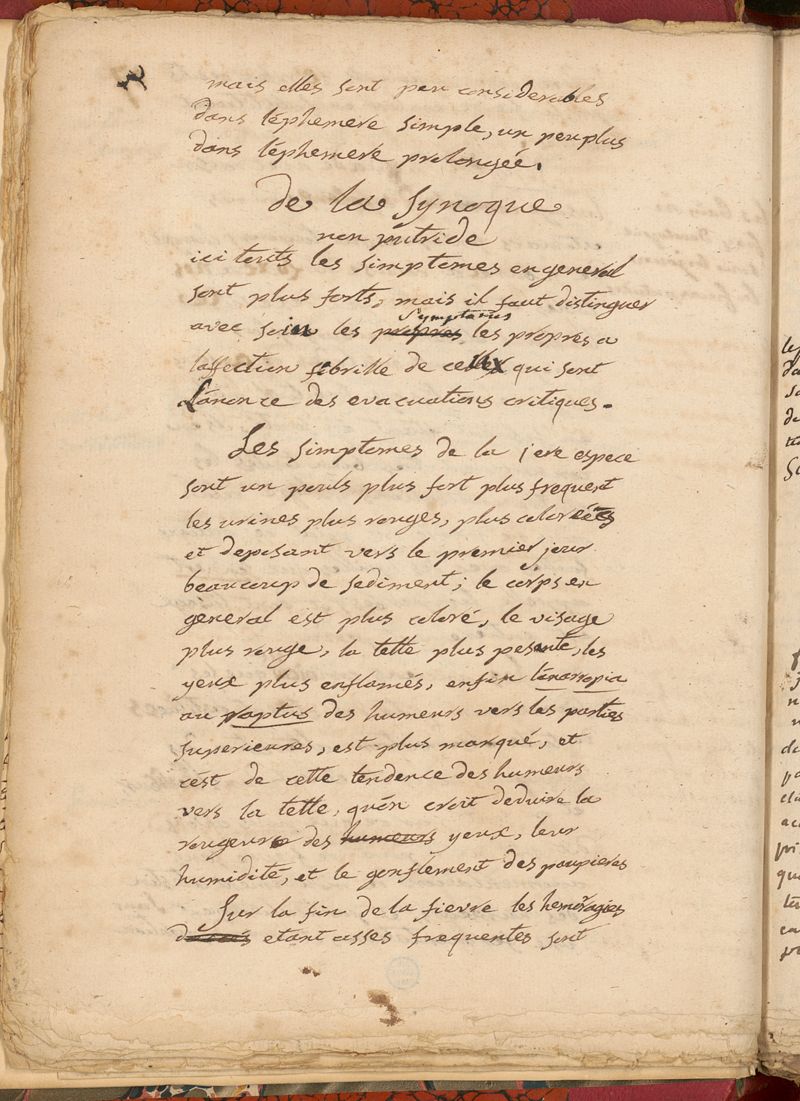 mais elles sont peu considerables
dans l'ephemere simple, un peu plus
dans l'ephemere prolongée.
de la synoque
non putride
ici touts les simptomes en general
sont plus forts, mais il faut distinguer
symptomes
avec soin les propres les propres a
laffection febrille de ceux qui sont
L'anonce des evacuations critiques.
Les simptomes de la 1ere espece
sont un pouls plus fort plus frequent
les urines plus rouges, plus colorées
et deposant vers le premier jour
beaucoup de sediment; le corps en
general est plus coloré, le visage
plus rouge, la tette plus pesante, les
yeux plus enflamés, enfin l'anarropia
au raptus des humeurs vers les parties
superieures, est plus marqué, et
c'est de cette tendence des humeurs
vers la tette, qu'on croit deduire la
rougeur des humeurs yeux, leur
humidité, et le gonflement des paupieres
Sur la fin de la fievre les hemoragies
etant asses frequentes sont